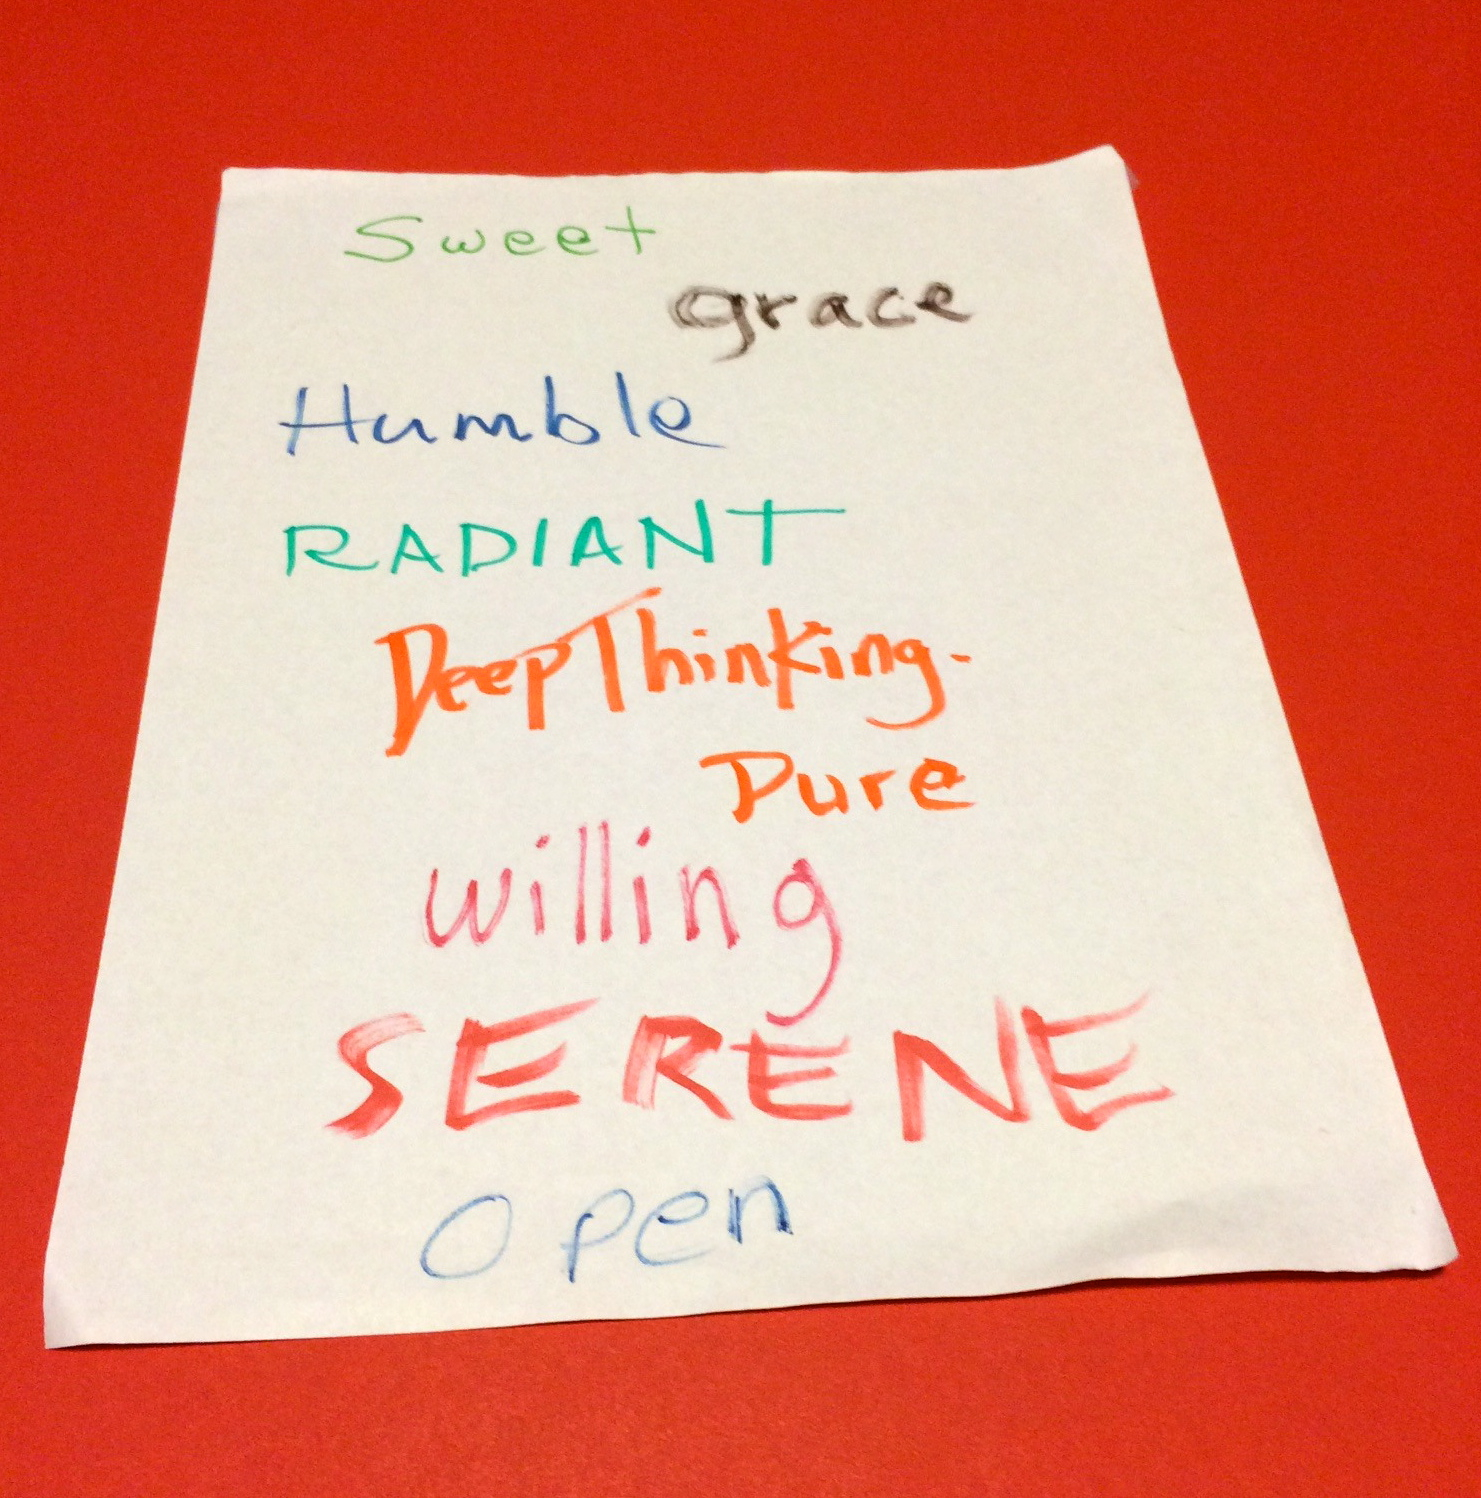 Sweet
grace
Humble
RADIANT
Deep Thinking-
Pure
willing
SERENE
Open